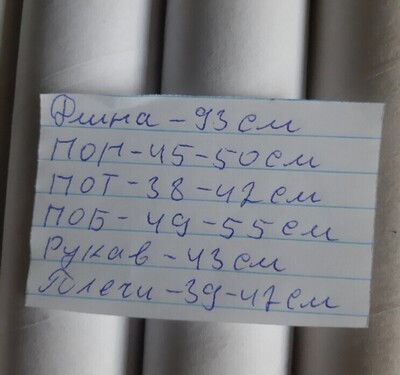 Длина - 93 см
ПОГ - 45 - 50 см
ПОТ - 38 - 42 см
ПОБ - 49 - 55 см
Рукав - 43 см
Плечи - 39 - 47 см